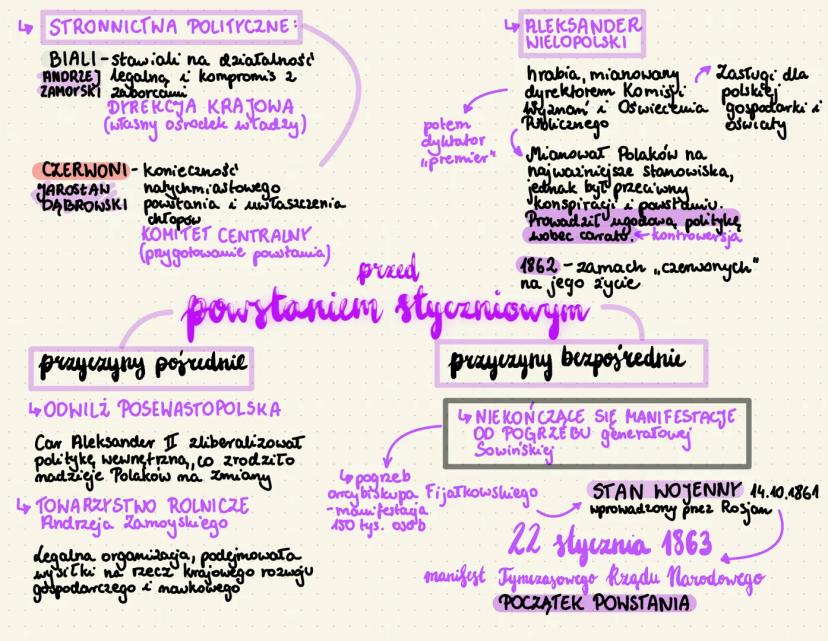 ↳ STRONNICTWA POLITYCZNE:
BIALI - stawiali na działalność
ANDRZEJ legalną i kompromis z
ZAMOYSKI zaborcami
DYREKCJA KRAJOWA
(własny ośrodek władzy)
CZERWONI - konieczność
JAROSŁAW natychmiastowego
DĄBROWSKI powstania i uwłaszczenia
chłopów
KOMITET CENTRALNY
(przygotowanie powstania)
↳ ALEKSANDER
WIELOPOLSKI
hrabia, mianowany
dyrektorem Komisji
Wyznań i Oświecenia
Publicznego
Zasługi dla
polskiej
gospodarki i
oświaty
potem
dyktator
"premier"
Mianował Polaków na
najważniejsze stanowiska,
jednak był przeciwny
konspiracji i powstaniu.
Prowadził ugodową politykę
wobec caratu. ← kontrowersja
1862 - zamach "czerwonych"
na jego życie
przed
powstaniem styczniowym
przyczyny pośrednie
↳ ODWILŻ POSEWASTOPOLSKA
Car Aleksander II zliberalizował
politykę wewnętrzną, co zrodziło
nadzieje Polaków na zmiany
↳ TOWARZYSTWO ROLNICZE
Andrzeja Zamoyskiego
Legalna organizacja, podejmowała
wysiłki na rzecz krajowego rozwoju
gospodarczego i naukowego
przyczyny bezpośrednie
↳ NIEKOŃCZĄCE SIĘ MANIFESTACJE
OD POGRZEBU generałowej
Sowińskiej
↳ pogrzeb
arcybiskupa Fijałkowskiego
- manifestacja
150 tys. osób
STAN WOJENNY 14.10.1861
wprowadzony przez Rosjan
22 stycznia 1863
manifest Tymczasowego Rządu Narodowego
POCZĄTEK POWSTANIA